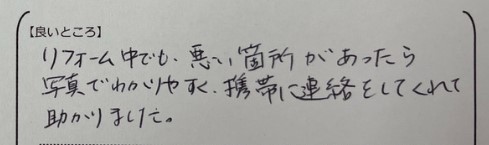 【良いところ】
リフォーム中でも、悪い箇所があったら
写真でわかりやすく、携帯に連絡をしてくれて
助かりました。